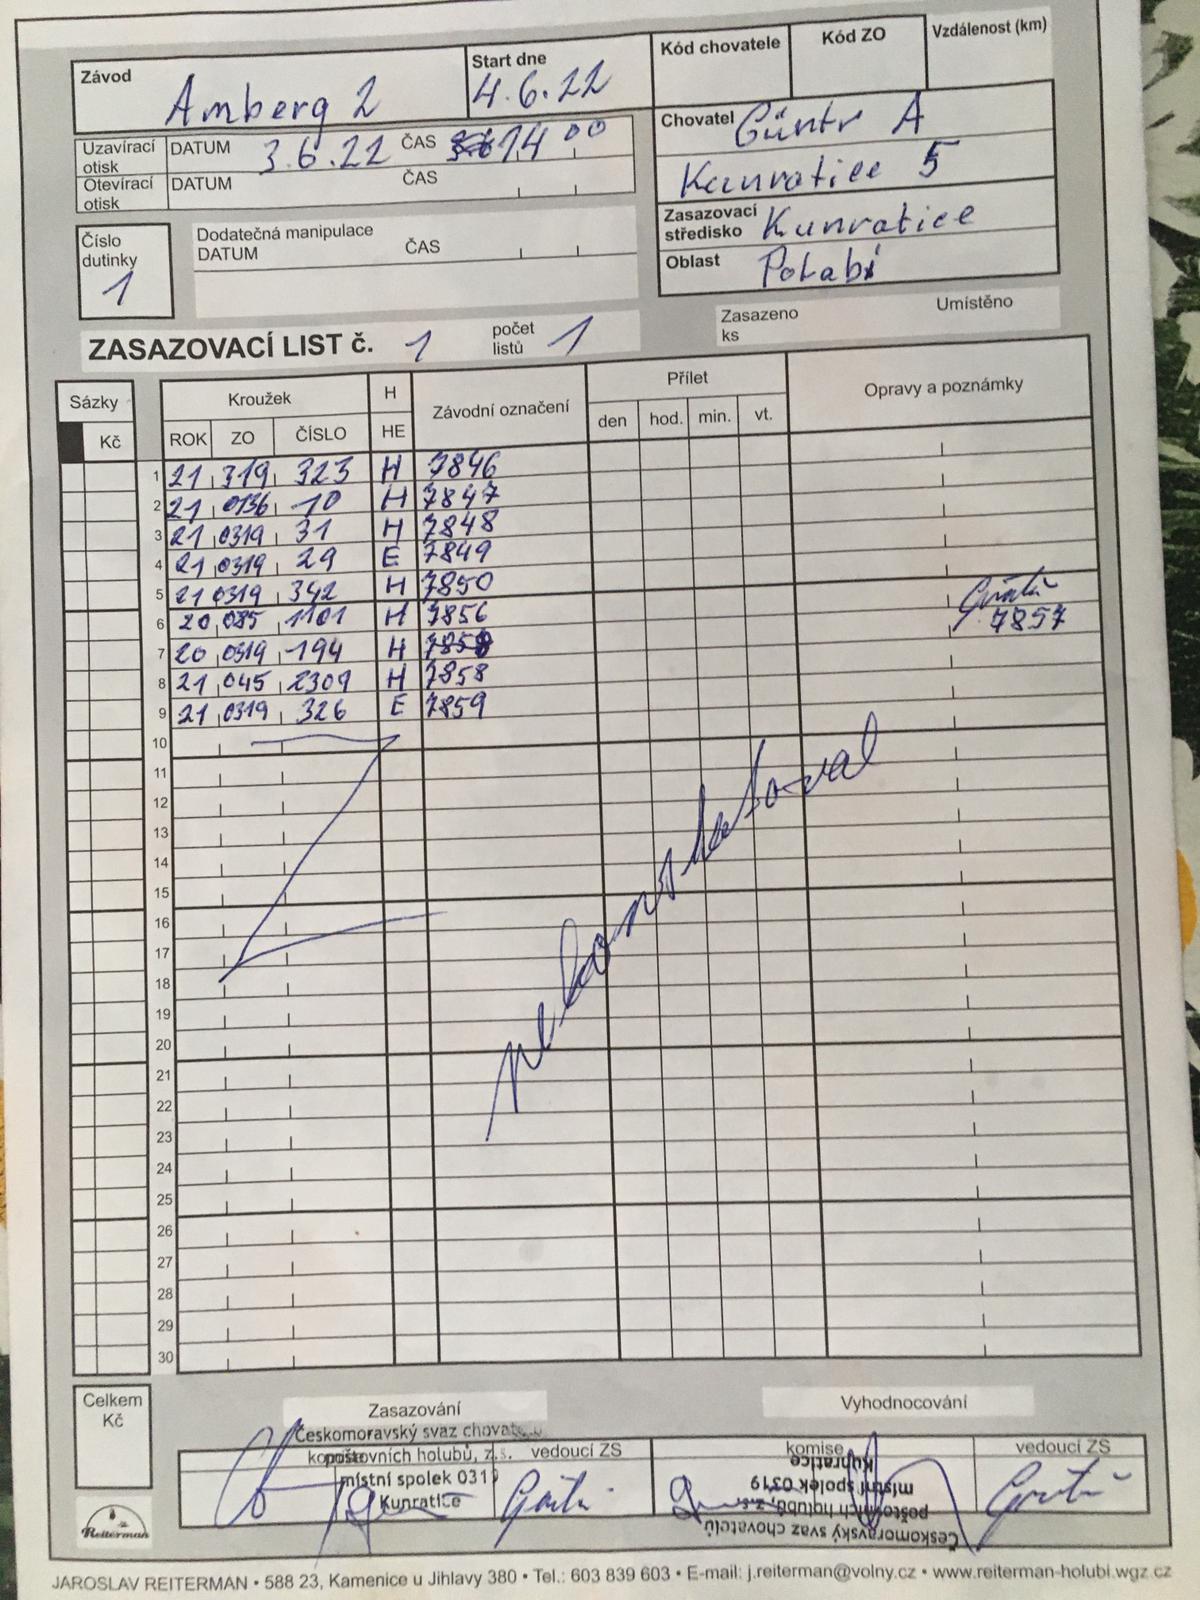 Závod Amberg 2
Start dne 4.6.22
Kód chovatele
Kód ZO
Vzdálenost (km)
Uzavírací otisk DATUM 3.6.22 ČAS 14 00
Otevírací otisk DATUM ČAS
Chovatel Güntr A
Kunratice 5
Zasazovací středisko Kunratice
Oblast Polabí
Číslo dutinky 1
Dodatečná manipulace
DATUM ČAS
Zasazeno ks
Umístěno
ZASAZOVACÍ LIST č. 1 počet listů 1
Sázky Kroužek H Závodní označení Přílet Opravy a poznámky
Kč ROK ZO ČÍSLO HE den hod. min. vt.
1 21 319 323 H 7846
2 21 0136 10 H 7847
3 21 0319 31 H 7848
4 21 0319 29 E 7849
5 21 0319 342 H 7850
6 20 085 1101 H 7856
7 20 0319 194 H 7857
8 21 045 2309 H 7858
9 21 0319 326 E 7859
10
11
12
13
14
15
16
17
18
19
20
21
22
23
24
25
26
27
28
29
30
nekonstatoval
Celkem Kč
Zasazování
Vyhodnocování
Českomoravský svaz chovatelů
poštovních holubů, z.s.
místní spolek 0319
Kunratice
komise vedoucí ZS
komise vedoucí ZS
Českomoravský svaz chovatelů
poštovních holubů, z.s.
místní spolek 0319
Kunratice
Reiterman
JAROSLAV REITERMAN • 588 23, Kamenice u Jihlavy 380 • Tel.: 603 839 603 • E-mail: j.reiterman@volny.cz • www.reiterman-holubi.wgz.cz